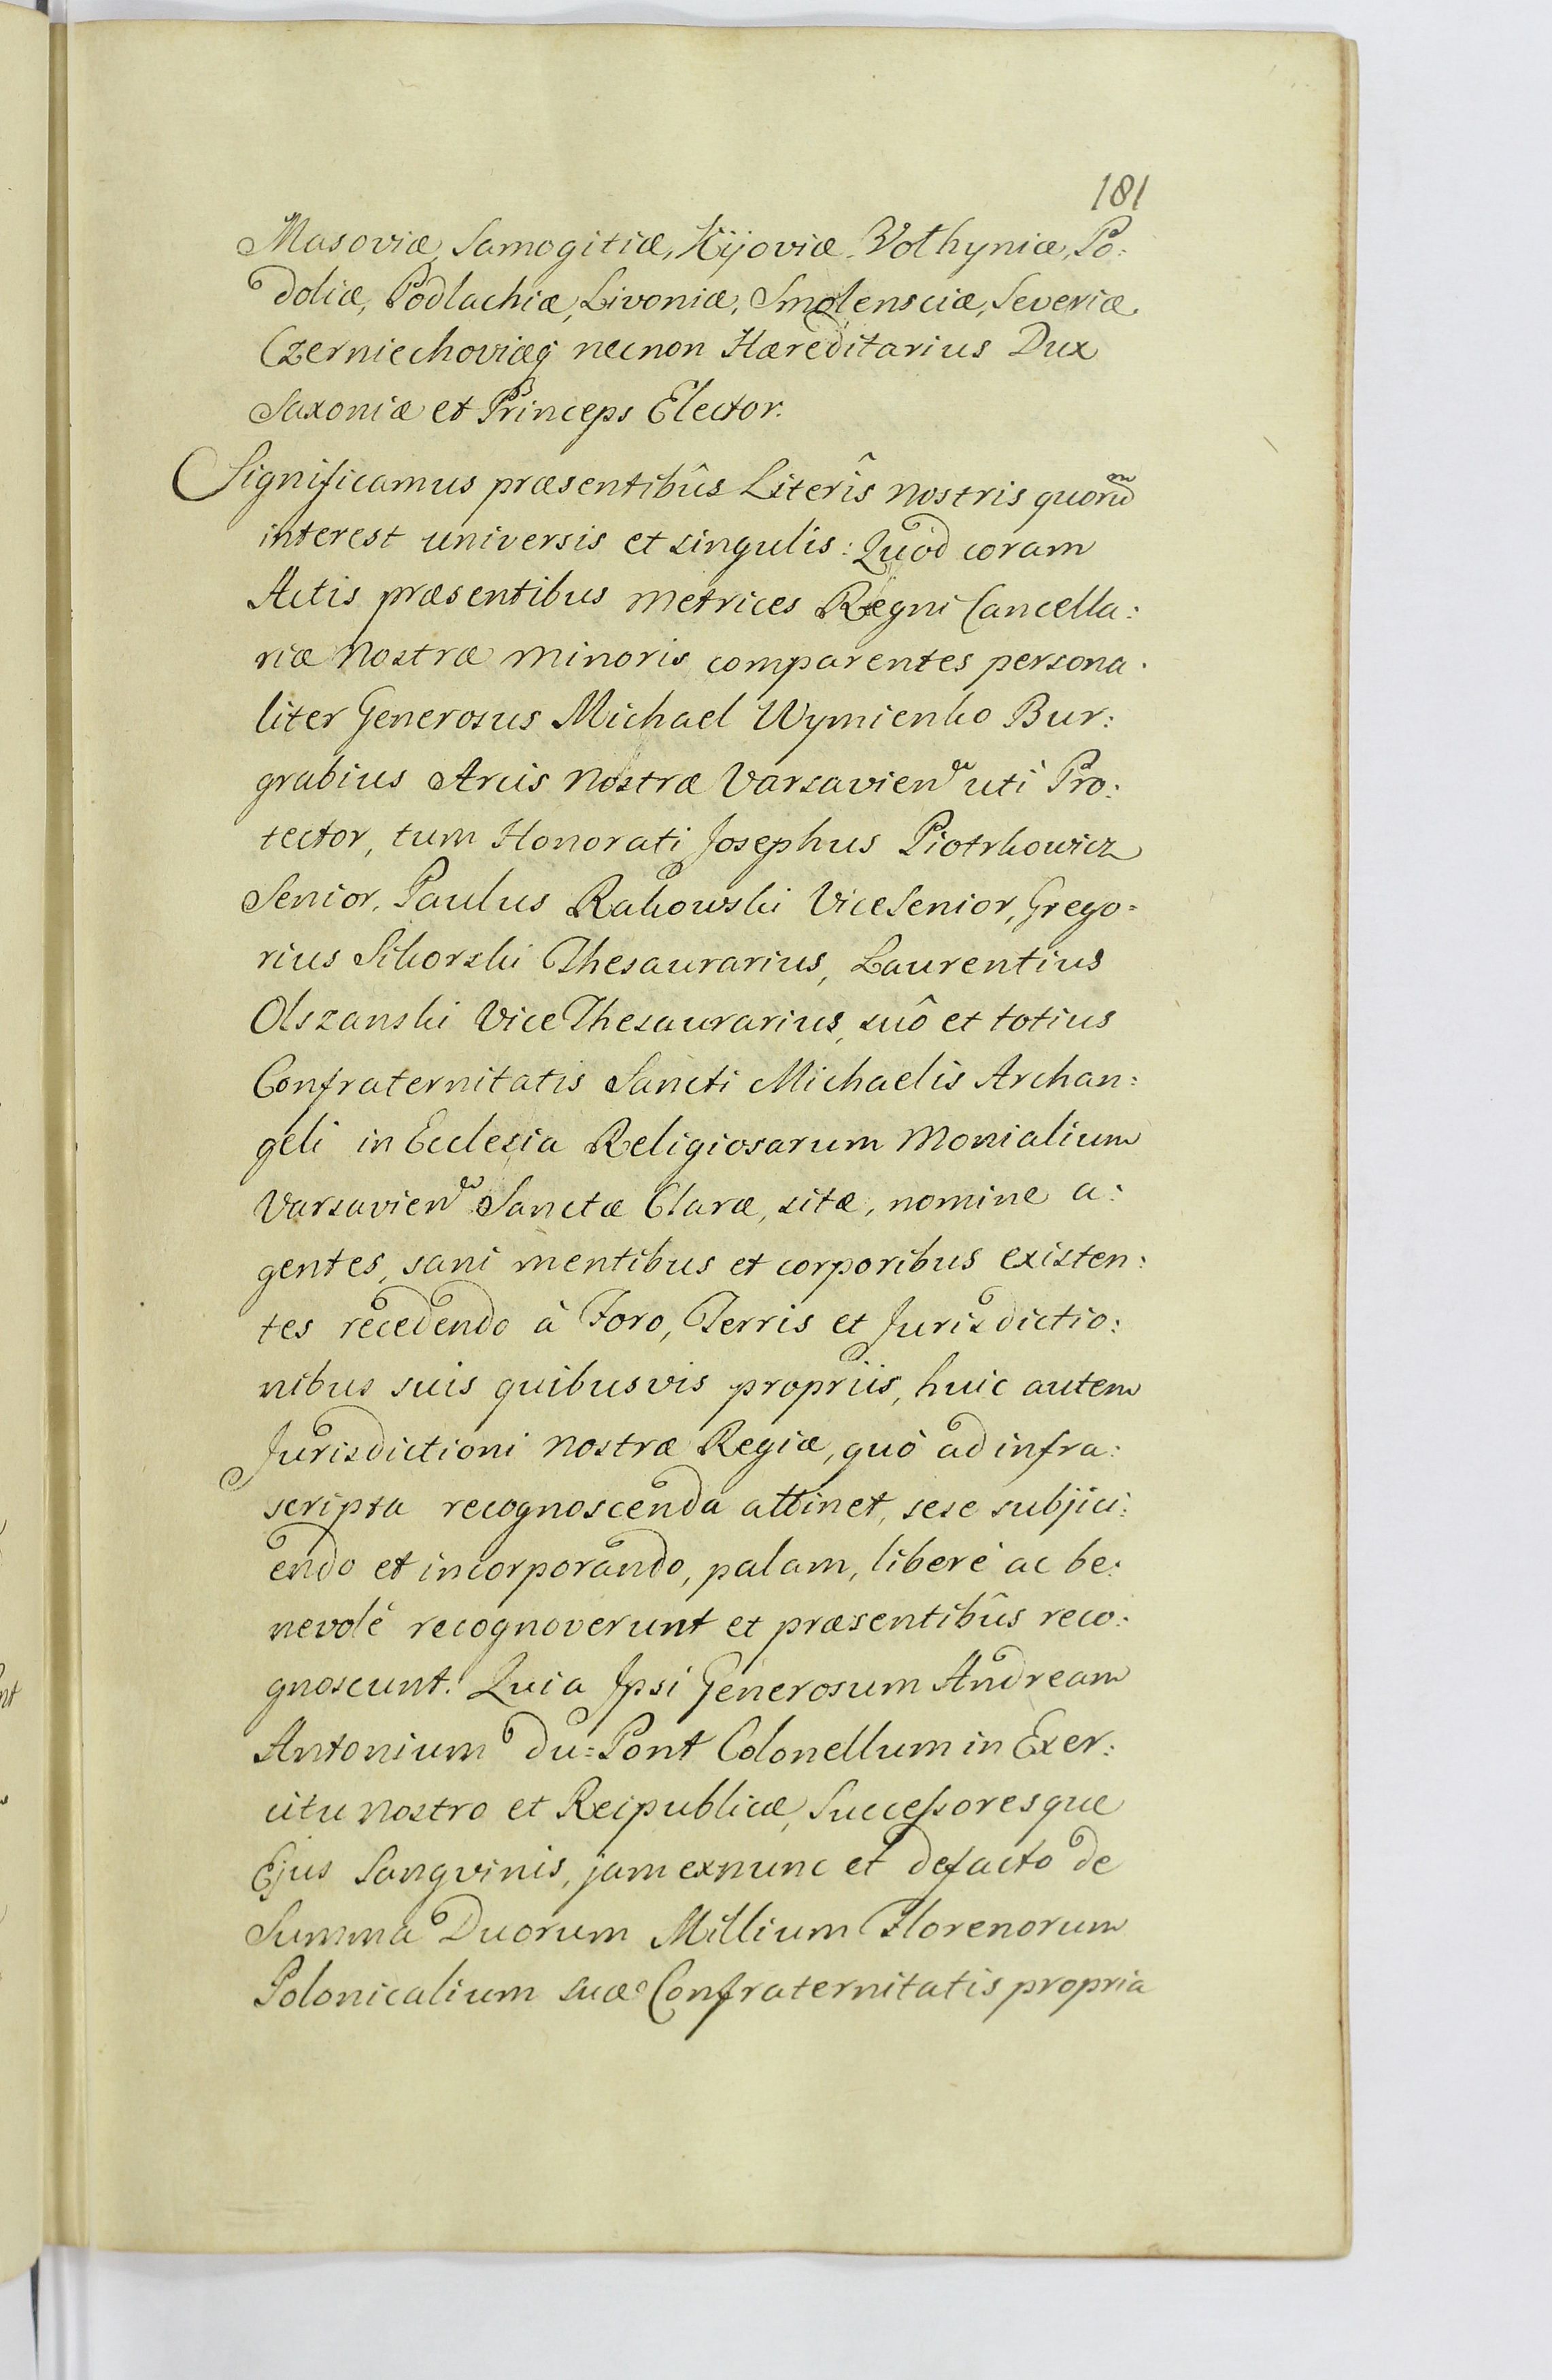 181
Masoviæ, Samogitiæ, Kijoviæ, Volhyniæ, Po:
doliæ, Podlachiæ, Livoniæ, Smolensciæ, Severiæ,
Czerniechoviæq́ necnon Hæreditarius Dux
Saxoniæ et Princeps Elector.
Significamus præsentibûs Literîs nostris quorũ
interest universis et singulis: Quòd coram
Actis præsentibus Metrices Regni Cancella:
riæ Nostræ Minoris comparentes persona:
liter Generosus Michael Wymienko Bur:
grabius Arcis Nostræ Varsavien uti Pro:
tector, tum Honorati Josephus Piotrkowicz
Senior, Paulus Rakowski ViceSenior, Grego:
rius Sikorski Thesaurarius, Laurentius
Olszanski ViceThesaurarius, suô et totius
Confraternitatis Sancti Michaelis Archan:
geli in Ecclesia Religiosarum Monialium
Varsavien Sanctæ Claræ, sitæ, nomine a:
gentes, sani mentibus et corporibus existen:
tes recedendo à Foro, Terris et Jurisdictio:
nibus suis quibusvis propriis, huic autem
Jurisdictioni Nostræ Regiæ, quò ad infra:
scripta recognoscenda attinet, sese subjici:
endo et incorporando, palam, liberè ac be:
nevolè recognoverunt et præsentibûs reco:
gnoscunt. Quia Ipsi Generosum Andream
Antonium du=Pont Colonellum in Exer:
citu Nostro et Reipublicæ, Successoresque
Ejus Sangvinis, jam exnunc et defacto de
Summa Duorum Millium Florenorum
Polonicalium suæ Confraternitatis propria